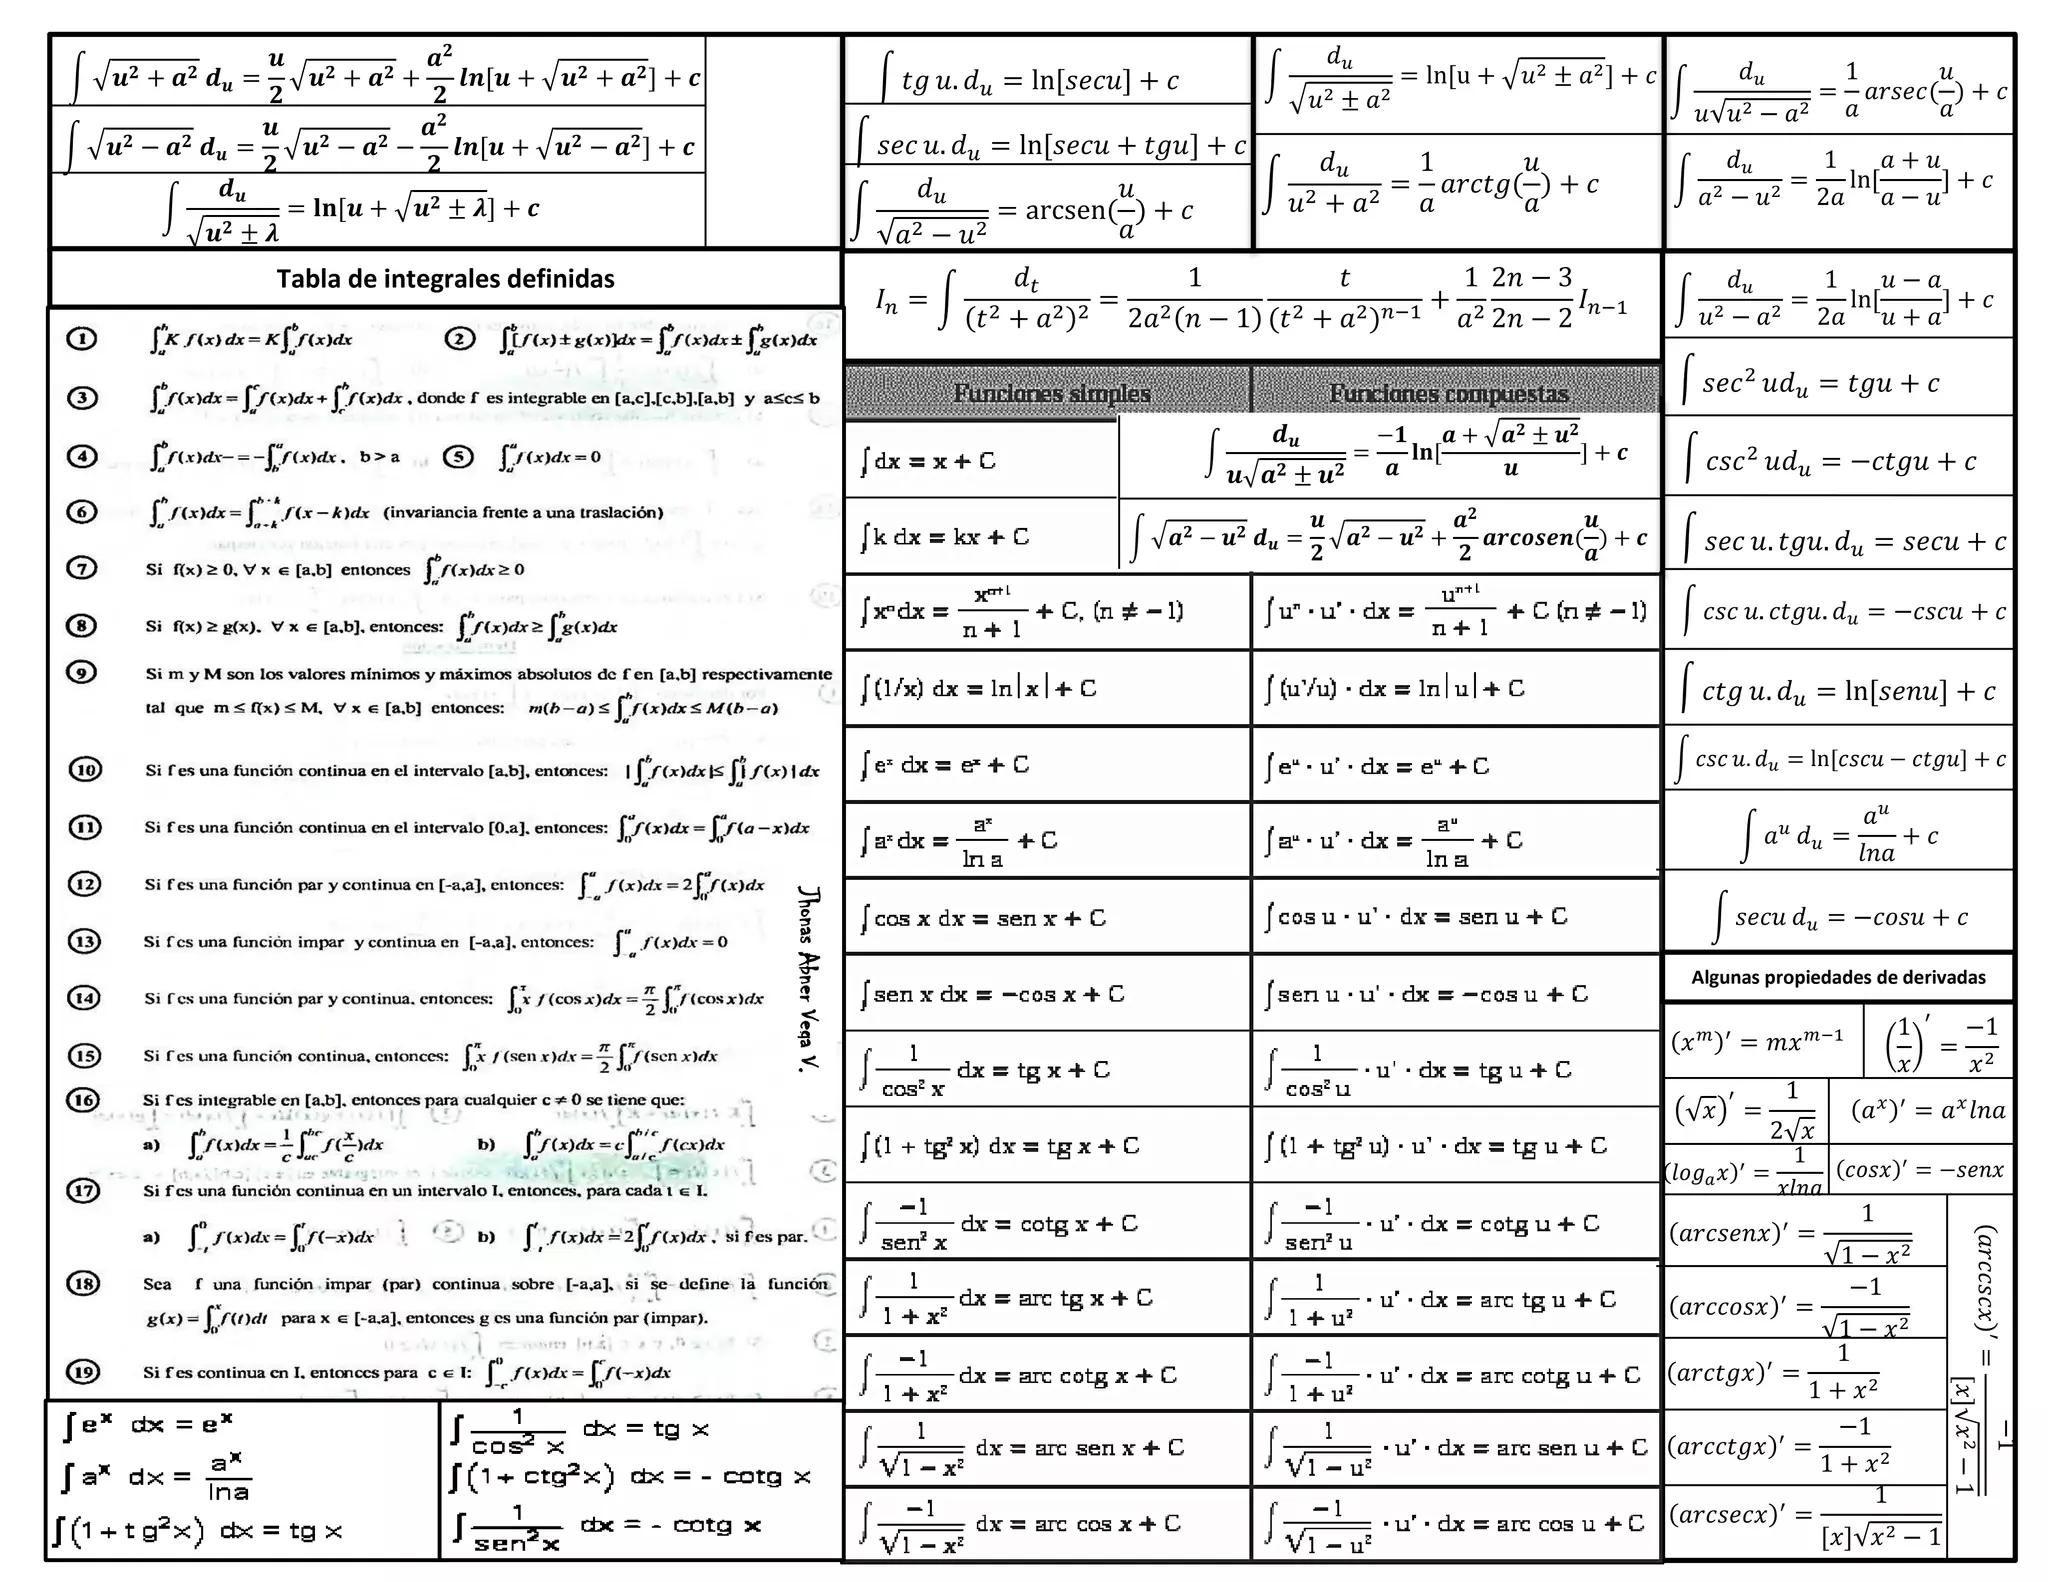 ∫ √(u² + a²) d_u = u/2 √(u² + a²) + a²/2 ln[u + √(u² + a²)] + c
∫ √(u² − a²) d_u = u/2 √(u² − a²) − a²/2 ln[u + √(u² − a²)] + c
∫ d_u/√(u² ± λ) = ln[u + √(u² ± λ)] + c
∫ tg u. d_u = ln[secu] + c
∫ sec u. d_u = ln[secu + tgu] + c
∫ d_u/√(a² − u²) = arcsen(u/a) + c
∫ d_u/√(u² ± a²) = ln[u + √(u² ± a²)] + c
∫ d_u/(u² + a²) = 1/a arctg(u/a) + c
∫ d_u/(u√(u² − a²)) = 1/a arsec(u/a) + c
∫ d_u/(a² − u²) = 1/2a ln[(a + u)/(a − u)] + c
Tabla de integrales definidas
① ∫ₐᵇ K f(x) dx = K ∫ₐᵇ f(x)dx ② ∫ₐᵇ [f(x) ± g(x)]dx = ∫ₐᵇ f(x)dx ± ∫ₐᵇ g(x)dx
③ ∫ₐᵇ f(x)dx = ∫ₐᶜ f(x)dx + ∫_c^b f(x)dx , donde f es integrable en [a,c],[c,b],[a,b] y a≤c≤ b
④ ∫ₐᵇ f(x)dx− = −∫_b^a f(x)dx , b > a ⑤ ∫ₐᵃ f(x)dx = 0
⑥ ∫ₐᵇ f(x)dx = ∫_{a+k}^{b+k} f(x − k)dx (invariancia frente a una traslación)
⑦ Si f(x) ≥ 0, ∀ x ∈ [a,b] entonces ∫ₐᵇ f(x)dx ≥ 0
⑧ Si f(x) ≥ g(x), ∀ x ∈ [a,b], entonces: ∫ₐᵇ f(x)dx ≥ ∫ₐᵇ g(x)dx
⑨ Si m y M son los valores mínimos y máximos absolutos de f en [a,b] respectivamente
tal que m ≤ f(x) ≤ M, ∀ x ∈ [a,b] entonces: m(b−a) ≤ ∫ₐᵇ f(x)dx ≤ M(b−a)
⑩ Si f es una función continua en el intervalo [a,b], entonces: |∫ₐᵇ f(x)dx |≤ ∫ₐᵇ| f(x) | dx
⑪ Si f es una función continua en el intervalo [0,a], entonces: ∫₀ᵃ f(x)dx = ∫₀ᵃ f(a − x)dx
⑫ Si f es una función par y continua en [-a,a], entonces: ∫₋ₐᵃ f(x)dx = 2∫₀ᵃ f(x)dx
⑬ Si f es una función impar y continua en [-a,a], entonces: ∫₋ₐᵃ f(x)dx = 0
⑭ Si f es una función par y continua, entonces: ∫₀^π x f(cos x)dx = π/2 ∫₀^π f(cos x)dx
⑮ Si f es una función continua, entonces: ∫₀^π x f(sen x)dx = π/2 ∫₀^π f(sen x)dx
⑯ Si f es integrable en [a,b], entonces para cualquier c ≠ 0 se tiene que:
a) ∫ₐᵇ f(x)dx = 1/c ∫_{ac}^{bc} f(x/c)dx b) ∫ₐᵇ f(x)dx = c∫_{a/c}^{b/c} f(cx)dx
⑰ Si f es una función continua en un intervalo I, entonces, para cada t ∈ I.
a) ∫₋ₜ⁰ f(x)dx = ∫₀ᵗ f(−x)dx b) ∫₋ₜᵗ f(x)dx = 2∫₀ᵗ f(x)dx , si f es par.
⑱ Sea f una función impar (par) continua sobre [-a,a], si se define la función
g(x) = ∫₀ˣ f(t)dt para x ∈ [-a,a], entonces g es una función par (impar).
⑲ Si f es continua en I, entonces para c ∈ I: ∫_{−c}^0 f(x)dx = ∫₀ᶜ f(−x)dx
Jhonas Abner Vega V.
∫eˣ dx = eˣ
∫aˣ dx = aˣ/lna
∫(1+tg²x) dx = tg x
∫ 1/cos² x dx = tg x
∫(1+ ctg²x) dx = - cotg x
∫ 1/sen²x dx = - cotg x
I_n = ∫ d_t/(t² + a²)² = 1/(2a²(n − 1)) t/(t² + a²)ⁿ⁻¹ + 1/a² (2n − 3)/(2n − 2) I_{n−1}
Funciones simples Funciones compuestas
∫dx = x + C
∫ d_u/(u√(a² ± u²)) = −1/a ln[(a + √(a² ± u²))/u] + c
∫k dx = kx + C
∫ √(a² − u²) d_u = u/2 √(a² − u²) + a²/2 arcosen(u/a) + c
∫xⁿdx = xⁿ⁺¹/(n + 1) + C, (n ≠ −1) ∫uⁿ · u' · dx = uⁿ⁺¹/(n + 1) + C (n ≠ −1)
∫(1/x) dx = ln|x| + C ∫(u'/u) · dx = ln|u| + C
∫eˣ dx = eˣ + C ∫eᵘ · u' · dx = eᵘ + C
∫aˣ dx = aˣ/ln a + C ∫aᵘ · u' · dx = aᵘ/ln a + C
∫cos x dx = sen x + C ∫cos u · u' · dx = sen u + C
∫sen x dx = −cos x + C ∫sen u · u' · dx = −cos u + C
∫ 1/cos² x dx = tg x + C ∫ 1/cos² u · u' · dx = tg u + C
∫(1 + tg² x) dx = tg x + C ∫(1 + tg² u) · u' · dx = tg u + C
∫ −1/sen² x dx = cotg x + C ∫ −1/sen² u · u' · dx = cotg u + C
∫ 1/(1 + x²) dx = arc tg x + C ∫ 1/(1 + u²) · u' · dx = arc tg u + C
∫ −1/(1 + x²) dx = arc cotg x + C ∫ −1/(1 + u²) · u' · dx = arc cotg u + C
∫ 1/√(1 − x²) dx = arc sen x + C ∫ 1/√(1 − u²) · u' · dx = arc sen u + C
∫ −1/√(1 − x²) dx = arc cos x + C ∫ −1/√(1 − u²) · u' · dx = arc cos u + C
∫ d_u/(u² − a²) = 1/2a ln[(u − a)/(u + a)] + c
∫ sec² ud_u = tgu + c
∫ csc² ud_u = −ctgu + c
∫ sec u. tgu. d_u = secu + c
∫ csc u. ctgu. d_u = −cscu + c
∫ ctg u. d_u = ln[senu] + c
∫ csc u. d_u = ln[cscu − ctgu] + c
∫ aᵘ d_u = aᵘ/lna + c
∫ secu d_u = −cosu + c
Algunas propiedades de derivadas
(xᵐ)′ = mxᵐ⁻¹ (1/x)′ = −1/x²
(√x)′ = 1/(2√x) (aˣ)′ = aˣlna
(logₐx)′ = 1/(xlna) (cosx)′ = −senx
(arcsenx)′ = 1/√(1 − x²)
(arccosx)′ = −1/√(1 − x²)
(arctgx)′ = 1/(1 + x²)
(arcctgx)′ = −1/(1 + x²)
(arcsecx)′ = 1/([x]√(x² − 1))
(arccscx)′ = −1/([x]√(x² − 1))